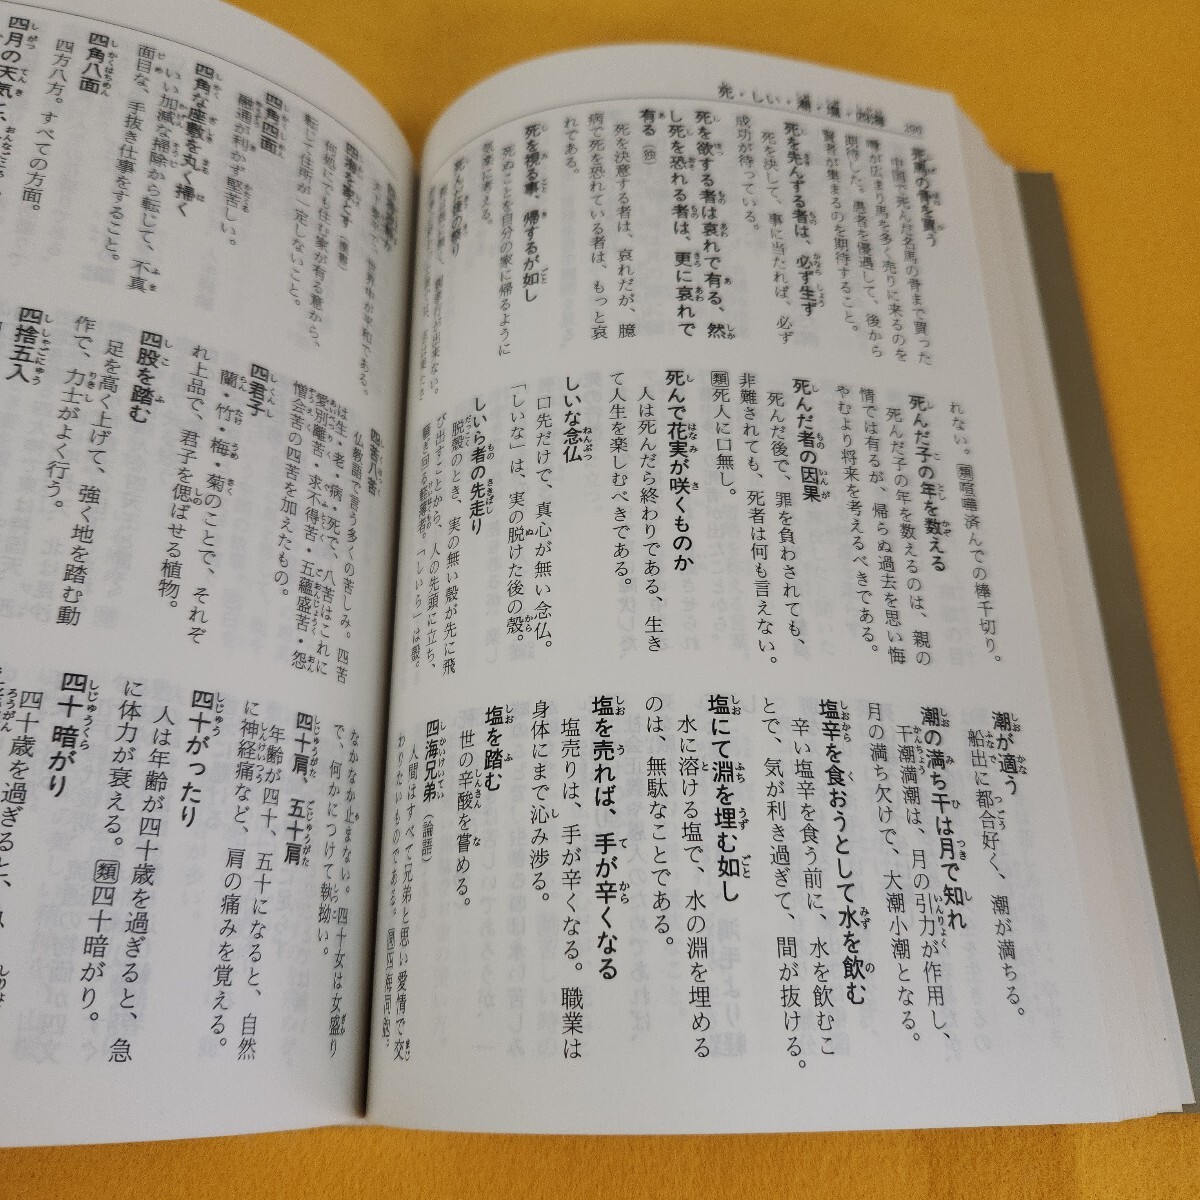 死・しい・潮・塩・四海
290
死馬の骨を買う
中国で死んだ名馬の骨まで買った
噂が広まり馬を多く売りに来るのを
期待した。愚者を優遇して、後から
賢者が集まるのを期待すること。
死を先んずる者は、必ず生ず
死を決して、事に当たれば、必ず
成功が待っている。
死を欲する者は哀れで有る、然
し死を恐れる者は、更に哀れで
有る(独)
死を決意する者は、哀れだが、臆
病で死を恐れている者は、もっと哀
れである。
死を視る事、帰するが如し
死ぬことを自分の家に帰るように
気楽に考える。
れない。類喧嘩済んでの棒千切り。
死んだ子の年を数える
死んだ子の年を数えるのは、親の
情では有るが、帰らぬ過去を思い悔
やむより将来を考えるべきである。
死んだ者の因果
死んだ後で、罪を負わされても、
非難されても、死者は何も言えない。
類死人に口無し。
死んで花実が咲くものか
人は死んだら終わりである、生き
て人生を楽しむべきである。
しいな念仏
口先だけで、真心が無い念仏。
「しいな」は、実の脱けた後の殻。
しいら者の先走り
脱穀のとき、実の無い殻が先に飛
び出すことから、人の先頭に立ち、
騒ぎ回る軽薄者。「しいら」は殻。
潮が適う
船出に都合好く、潮が満ちる。
潮の満ち干は月で知れ
干潮満潮は、月の引力が作用し、
月の満ち欠けで、大潮小潮となる。
塩辛を食おうとして水を飲む
辛い塩辛を食う前に、水を飲むこ
とで、気が利き過ぎて、間が抜ける。
塩にて淵を埋む如し
水に溶ける塩で、水の淵を埋める
のは、無駄なことである。
塩を売れば、手が辛くなる
塩売りは、手が辛くなる。職業は
身体にまで沁み渉る。
塩を踏む
世の辛酸を嘗める。
四海兄弟(論語)
人間はすべて兄弟と思い愛情で交
わりたいものである。類四海同胞。
何処にでも住む家が有る意から、
転じて住所が一定しないこと。
四角四面
融通が利かず堅苦しい。
四角な座敷を丸く掃く
いい加減な掃除から転じて、不真
面目な、手抜き仕事をすること。
四角八面
四方八方。すべての方面。
四苦八苦
仏教語で言う多くの苦しみ。四苦
は生・老・病・死で、八苦はこれに
愛別離苦・求不得苦・五蘊盛苦・怨
憎会苦の四苦を加えたもの。
四君子
蘭・竹・梅・菊のことで、それぞ
れ上品で、君子を偲ばせる植物。
四股を踏む
足を高く上げて、強く地を踏む動
作で、力士がよく行う。
四捨五入
なかなか止まない。四十女は女盛り
で、何かにつけて執拗い。
四十肩、五十肩
年齢が四十、五十になると、自然
に神経痛など、肩の痛みを覚える。
四十がったり
人は年齢が四十歳を過ぎると、急
に体力が衰える。類四十暗がり。
四十暗がり
四十歳を過ぎると、